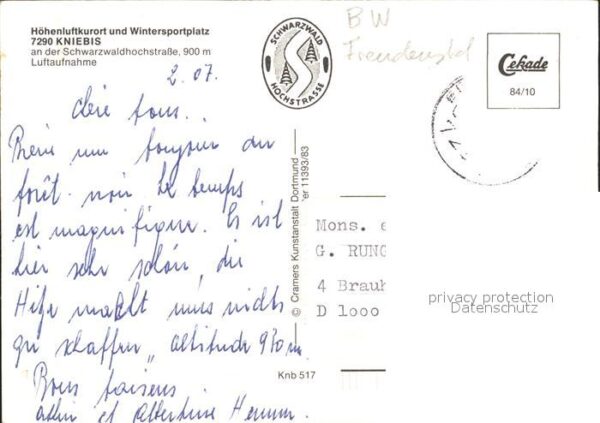 Höhenluftkurort und Wintersportplatz
7290 KNIEBIS
an der Schwarzwaldhochstraße, 900 m
Luftaufnahme
SCHWARZWALD
HOCHSTRASSE
BW
Freudenstd
Cekade
84/10
2.07.
tous..
un bonjour du
forêt noir Le temps
est magnifique. Es ist
hier sehr schön, die
Hitze macht uns nichts
zu schaffen, altitude 930 m
Bons baisers
et Albertine
© Cramers Kunstanstalt Dortmund
er 11393/83
Knb 517
Mons. e
G. RUNG
4 Brauh
D 1000
privacy protection
Datenschutz